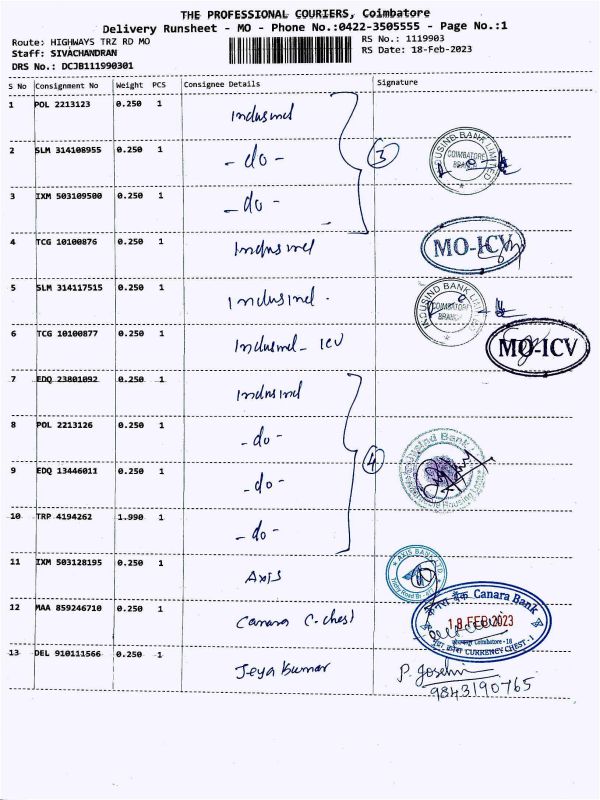 THE PROFESSIONAL COURIERS, Coimbatore
Delivery Runsheet - MO - Phone No.:0422-3505555 - Page No.:1
Route: HIGHWAYS TRZ RD MO
RS No.: 1119903
Staff: SIVACHANDRAN
RS Date: 18-Feb-2023
DRS No.: DCJB111990301
S No Consignment No Weight PCS Consignee Details Signature
1 POL 2213123 0.250 1 Indusind
3
2 SLM 314108955 0.250 1 - do -
INDUSIND BANK LIMITED
COIMBATORE
BRANCH
3 IXM 503109500 0.250 1 - do -
4 TCG 10100876 0.250 1 Indusind
MO-ICV
5 SLM 314117515 0.250 1 Indusind.
INDUSIND BANK LIMITED
COIMBATORE
BRANCH
6 TCG 10100877 0.250 1 Indusind - ICV
MO-ICV
7 EDQ 23801092 0.250 1 Indusind
8 POL 2213126 0.250 1 - do -
4
IndusInd Bank
9 EDQ 13446011 0.250 1 - do -
10 TRP 4194262 1.990 1 - do -
11 IXM 503128195 0.250 1 Axis
AXIS BANK LTD
12 MAA 859246710 0.250 1 Canara C. chest
केनरा बैंक Canara Bank
18 FEB 2023
Coimbatore - 18
CURRENCY CHEST - I
13 DEL 910111566 0.250 1 Jeya Kumar
P. Joselin
9843190765